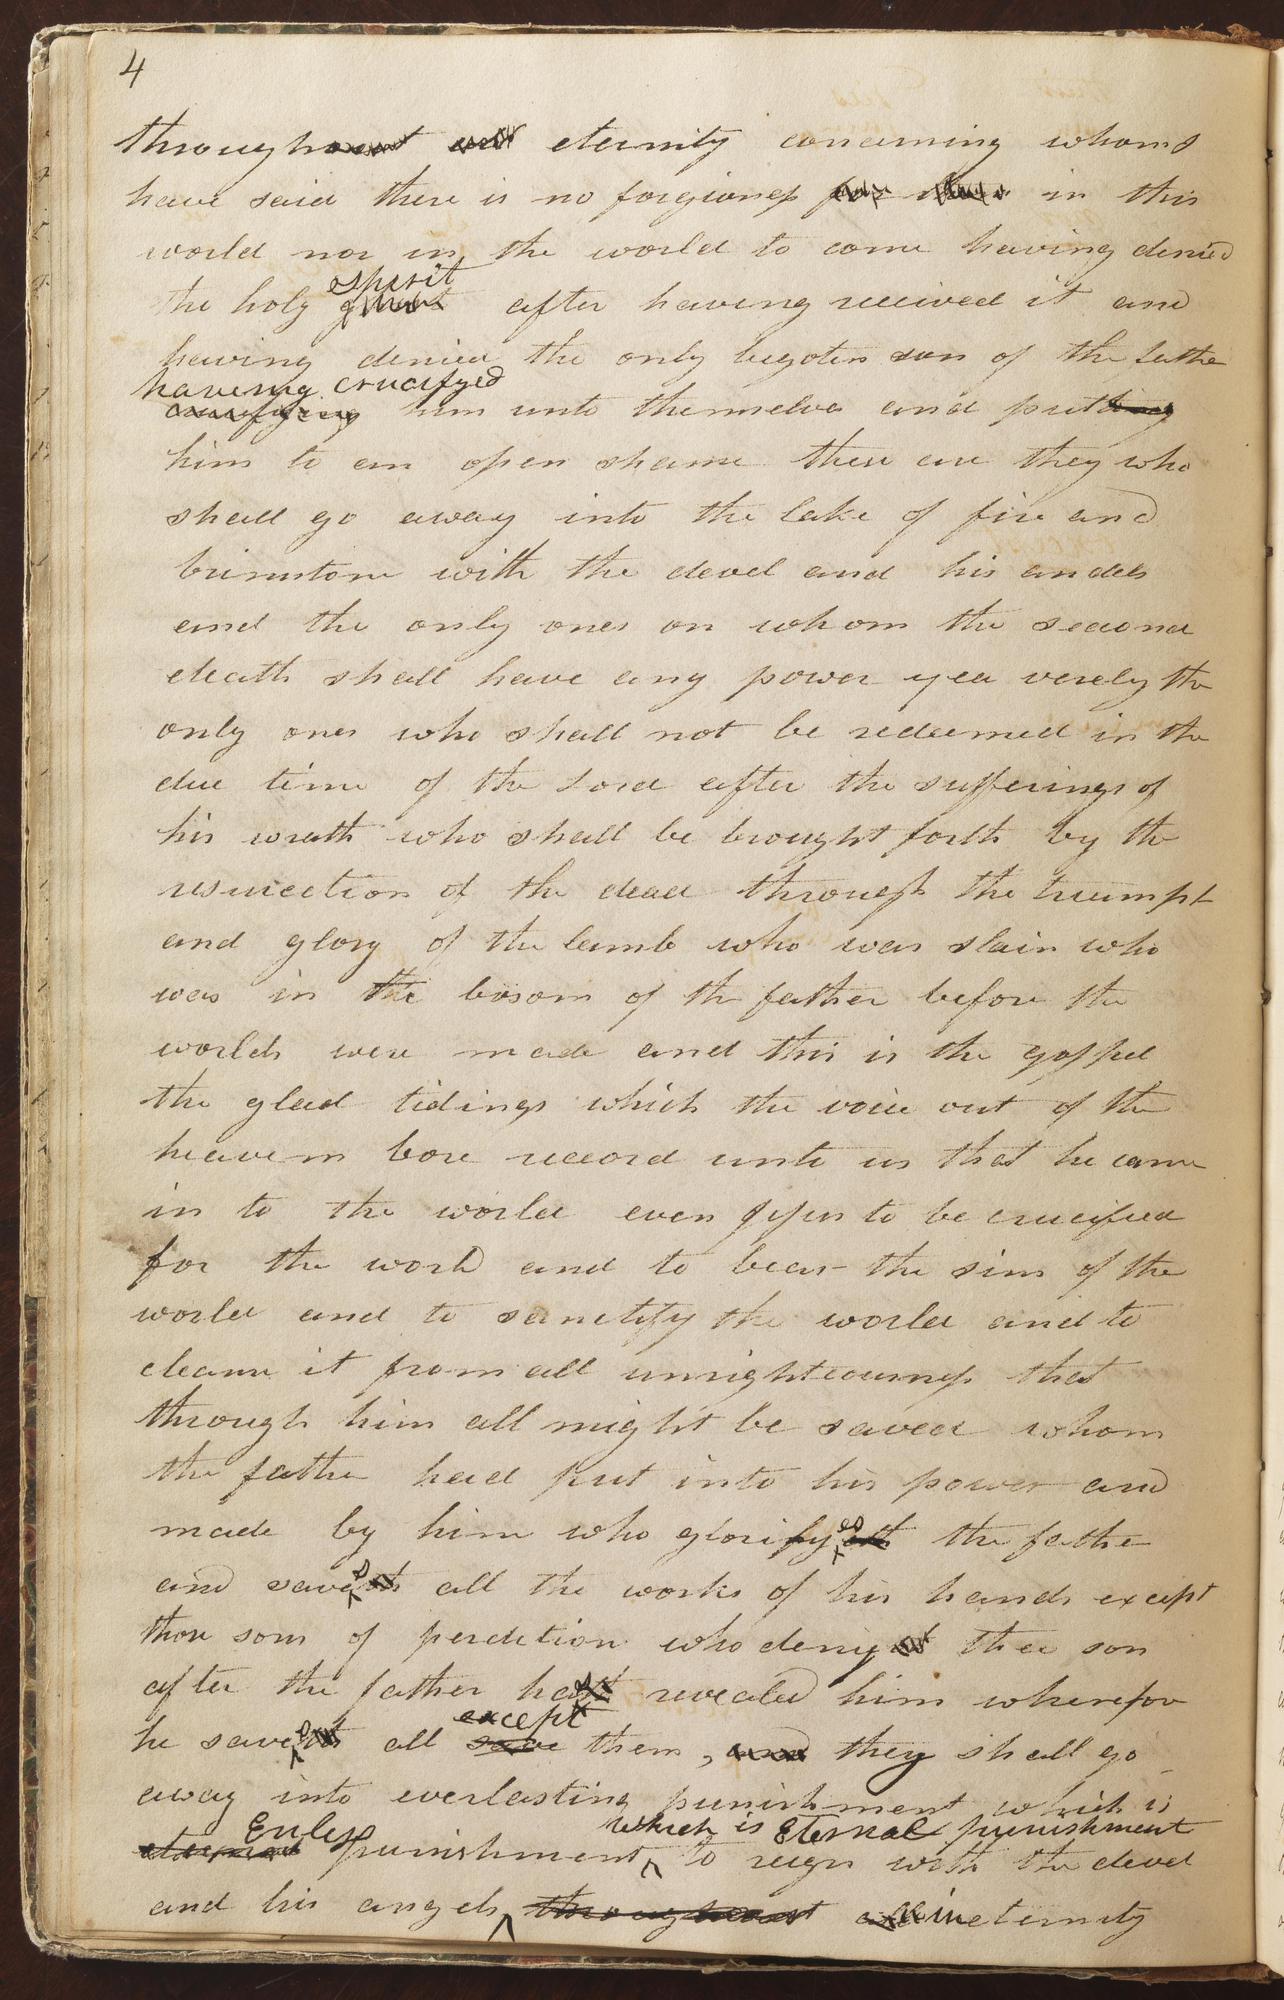 4
throughout all eternity concerning whom I
have said there is no forgivness for them in this
world nor in the world to come having denied
spirit
the holy ghost after having received it and
having denied the only begoten son of the fathe
having crucifyed
crucifying him unto themselves and putting
him to an open shame these are they who
shall go away into the lake of fire and
brimstone with the devel and his andels
and the only ones on whom the second
death shall have any power yea verely the
only ones who shall not be redeemed in the
due time of the Lord after the sufferings of
his wrath who shall be brought forth by the
resurection of the dead through the triumph
and glory of the lamb who was slain who
was in the bosom of the father before the
worlds were made and this is the gospel
the glad tidings which the voice out of the
heavens bore record unto us that he came
in to the world even Jesus to be crucified
for the world and to bear the sins of the
world and to sanctify the world and to
cleanse it from all unrighteousness that
through him all might be saved whom
the father had put into his power and
es
made by him who glorifyeth the father
s
and saveth all the works of his hands except
those sons of perdition who denyeth thee son
after the father hath revealed him wherefore
except
he saveths all save them, and they shall go
away into everlasting punishment which is
Enless which is Eternal punishment
eternal punishment to reign with the devel
and his angels throughout all in eternity